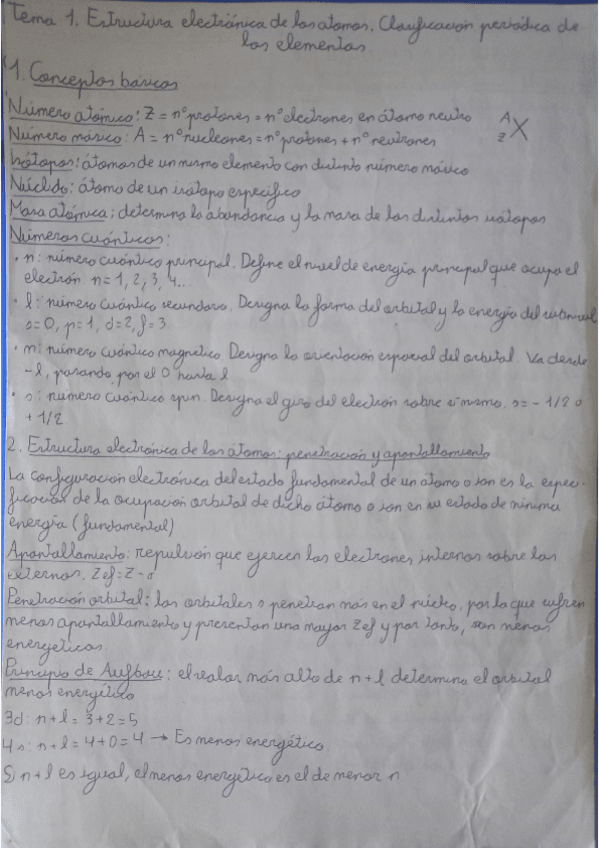 Tema 1. Estructura electrónica de los átomos. Clasificación periódica de
los elementos
1. Conceptos básicos
Número atómico: Z = nº protones = nº electrones en átomo neutro
A
Z X
Número másico: A = nº nucleones = nº protones + nº neutrones
Isótopos: átomos de un mismo elemento con distinto número másico
Núclido: átomo de un isótopo específico
Masa atómica: determina la abundancia y la masa de los distintos isótopos
Números cuánticos:
• n: número cuántico principal. Define el nivel de energía principal que ocupa el
electrón. n = 1, 2, 3, 4...
• l: número cuántico secundario. Designa la forma del orbital y la energía del subnivel
s=0, p=1, d=2, f=3
• m: número cuántico magnético Designa la orientación espacial del orbital. Va desde
-l, pasando por el 0 hasta l
• s: número cuántico spin. Designa el giro del electrón sobre sí mismo. s = -1/2 o
+1/2
2. Estructura electrónica de los átomos: penetración y apantallamiento
La configuración electrónica del estado fundamental de un átomo o ion es la especi-
ficación de la ocupación orbital de dicho átomo o ion en su estado de mínima
energía (fundamental)
Apantallamiento: repulsión que ejercen los electrones internos sobre los
externos. Zef = Z - σ
Penetración orbital: los orbitales s penetran más en el núcleo, por lo que sufren
menos apantallamiento y presentan una mayor Zef y por tanto, son menos
energéticos
Principio de Aufbau: el valor más alto de n + l determina el orbital
menos energético
3d: n + l = 3 + 2 = 5
4s: n + l = 4 + 0 = 4 → Es menos energético.
Si n + l es igual, el menos energético es el de menor n